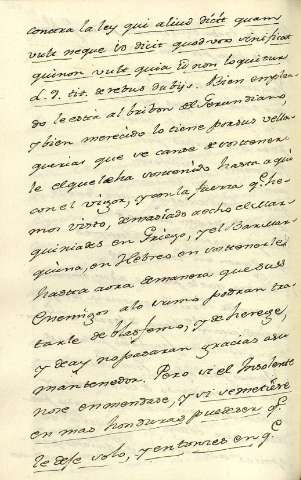 contra la ley qui aliud dicit quam
vult neque id dicit quod vox significat
quia non vult quia id non loquitur
L. 3. tit. de rebus dubijs. Bien emplea-
do le está al bribon el Gerundiano,
y bien merecido lo tiene por sus vella-
querias que se canse de sostener
le el que le ha sostenido hasta aqui
con el vigor, y con la fuerza q.e he-
mos visto, demasiado a echo el Mar-
quiniades en Griego, y el Barmar-
quina, en Hebreo en sostenerle
hasta aora de manera que sus
Enemigos a lo sumo podran tra-
tarle de blasfemo, y de herege,
y de ay no pasaran gracias a su
mantenedor. Pero si el Insolente
no se enmendare, y si se metiere
en mas honduras puede ser q.e
le deje solo, y entonces en q.e